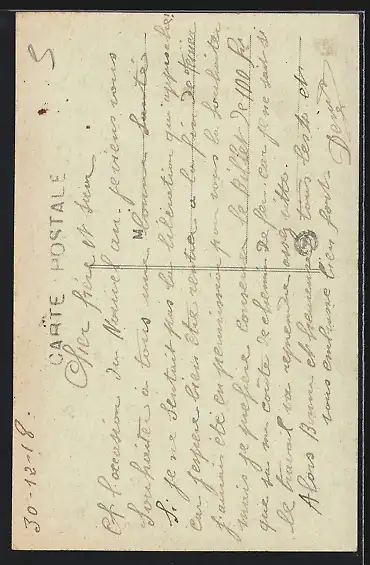 30-12-18.
CARTE POSTALE
Cher frère et sœur
A l'occasion du Nouvel an je viens vous
souhaiter à tous une bonne santé
Si je ne sentait pas la libération qui approche
car j'espère bien être rentré à la fin de
j'aurais été en permission pour vous la souhaiter
mais je préfère conserver le billet de 100 frs
que sa me coûte de chemin de fer car je ne sais si
le travail va reprendre assez vite.
Alors Bonne et heureuse à tous les
vous embrasse bien fort